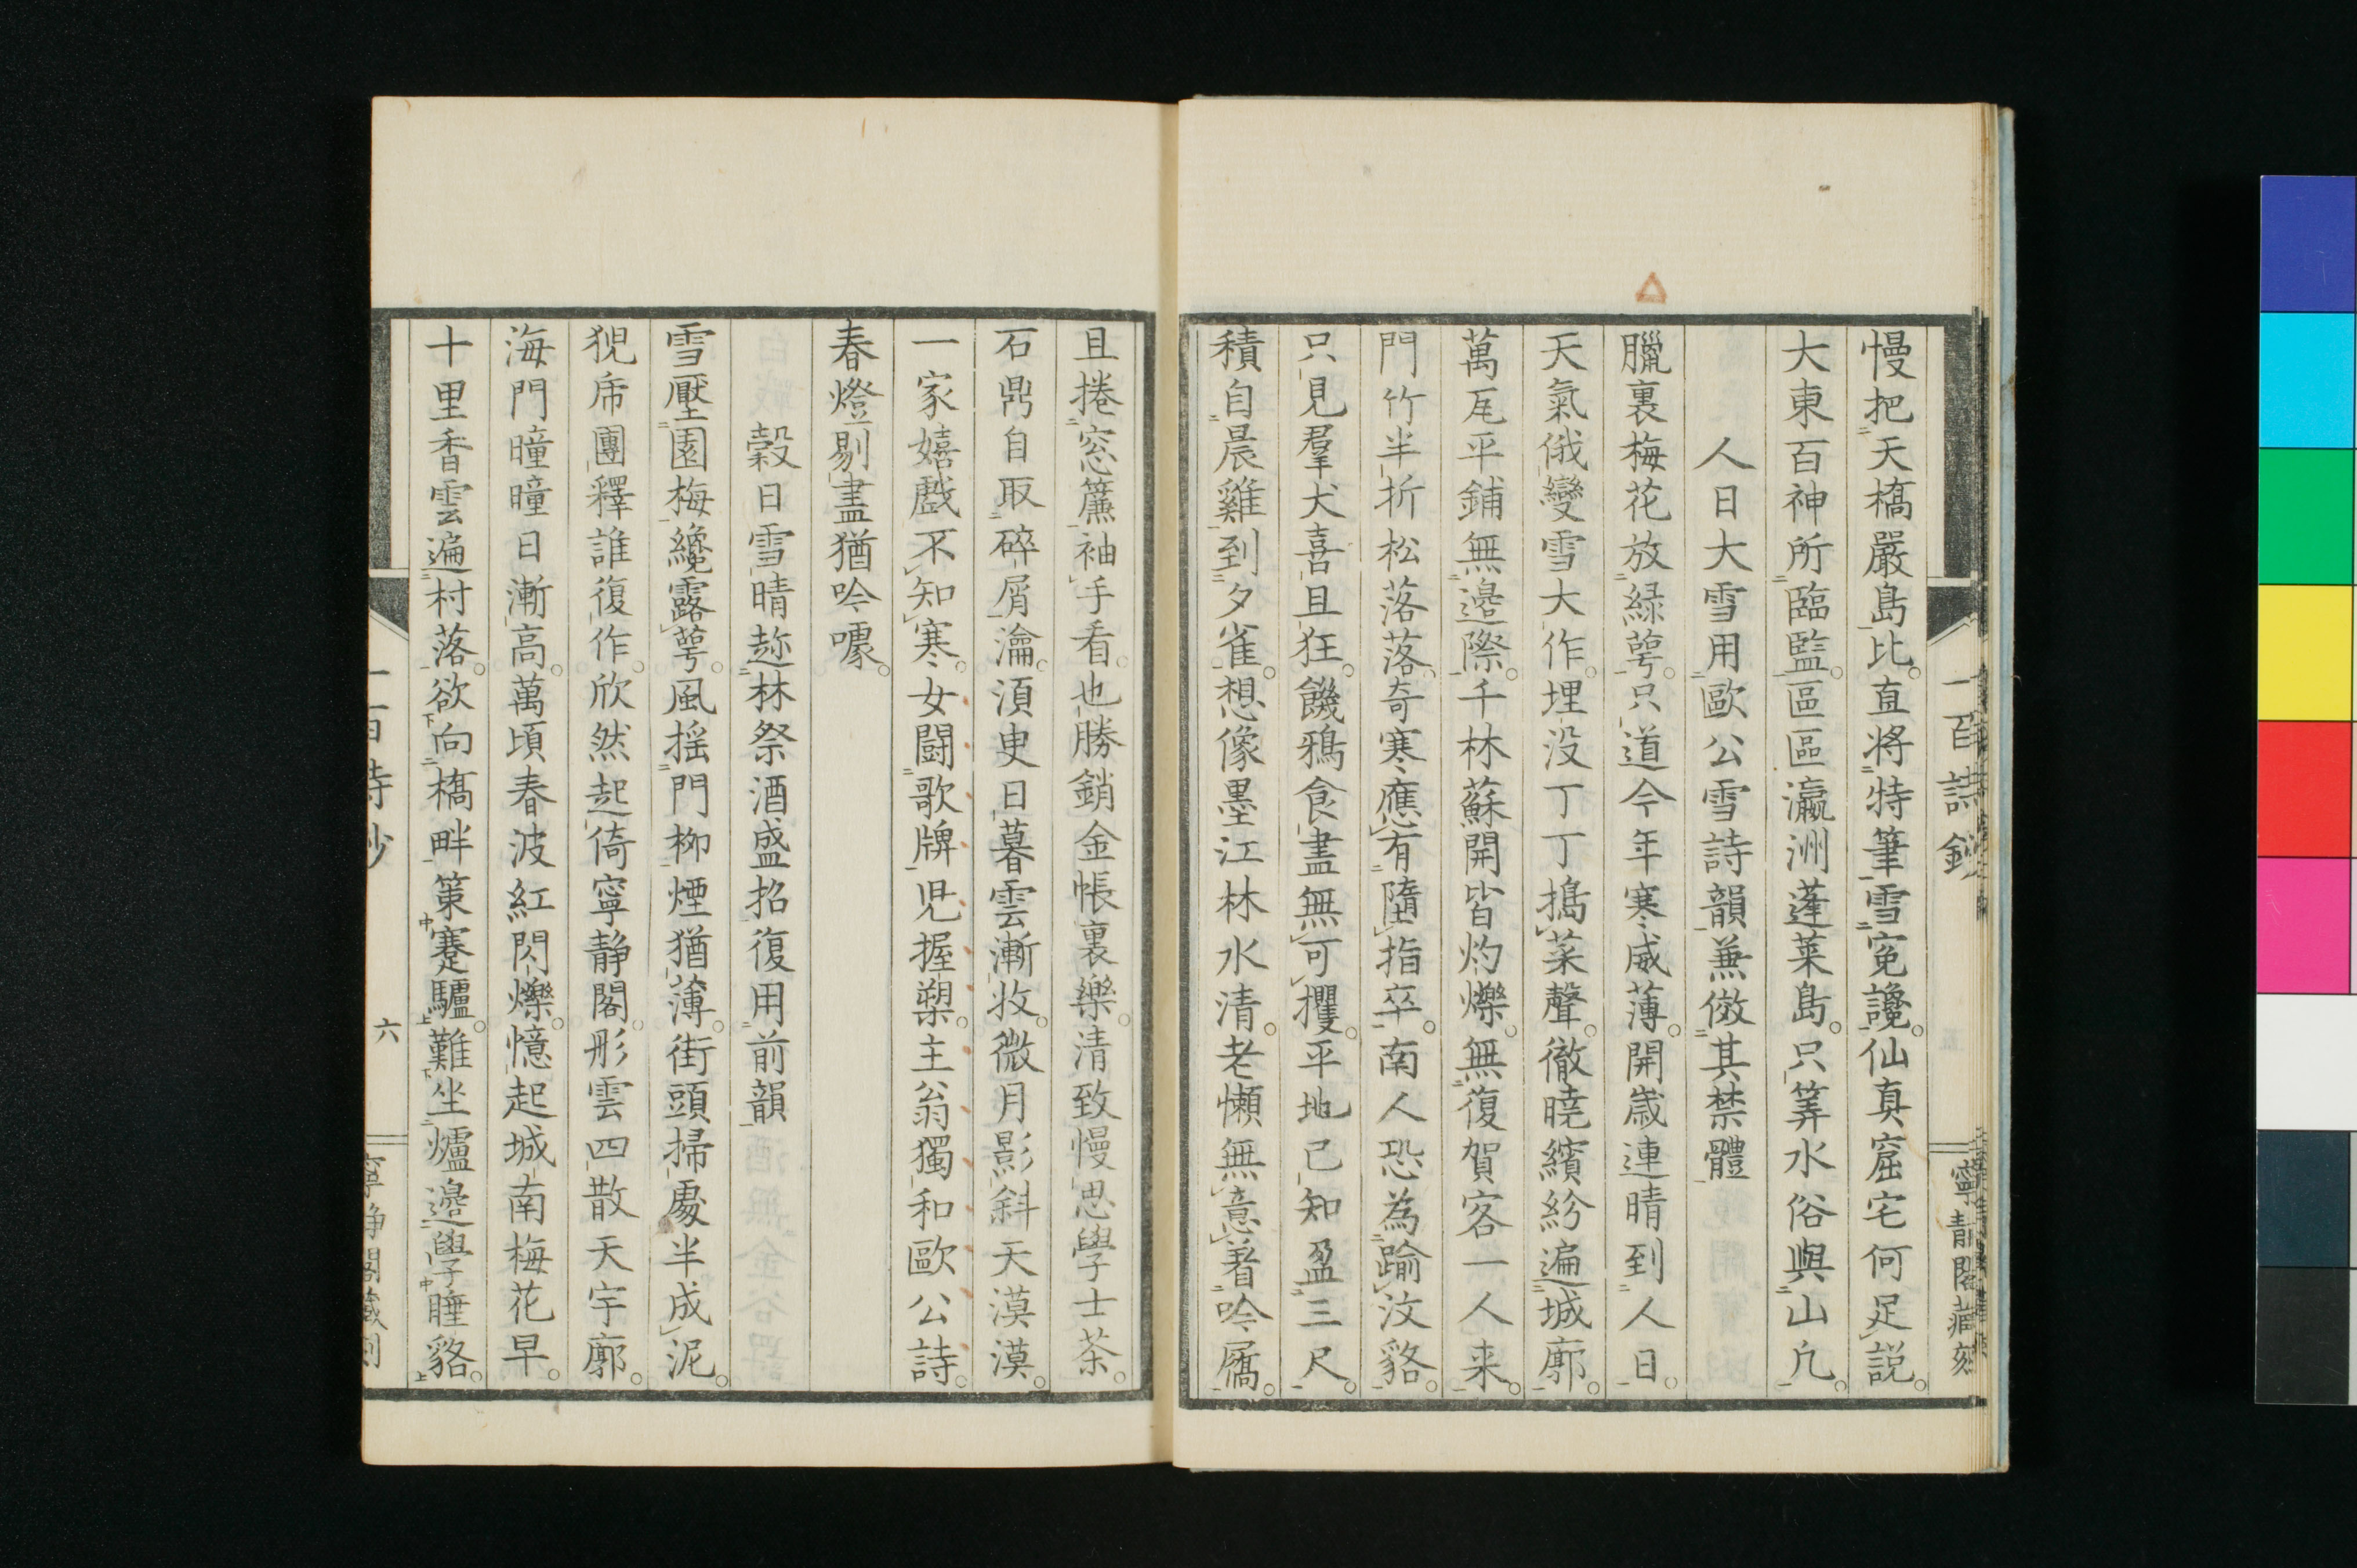 一百詩鈔
寧静閣藏刻
慢把天橋嚴島比直將特筆雪寃讒仙真窟宅何足説
大東百神所臨監區區瀛洲蓬莱島只筭水俗與山凢
人日大雪用歐公雪詩韻兼倣其禁體
臘裏梅花放緑萼只道今年寒威薄開歳連晴到人日
天氣俄變雪大作埋没丁丁搗菜聲徹曉繽紛遍城廓
萬瓦平鋪無邉際千林蘇開皆灼爍無復賀客一人来
門竹半折松落落奇寒應有墮指卒南人恐為踰汶貉
只見羣犬喜且狂饑鴉食盡無可攫平地已知盈三尺
積自晨雞到夕雀想像墨江林水清老懶無意着吟屩
且捲窓簾袖手看也勝銷金帳裏樂清致慢思學士茶
石鼎自取碎屑瀹須臾日暮雲漸收微月影斜天漠漠
一家嬉戲不知寒女闘歌牌児握槊主翁獨和歐公詩
春燈剔盡猶吟噱
穀日雪晴趂林祭酒盛招復用前韻
雪壓園梅纔露萼風揺門柳煙猶薄街頭掃處半成泥
猊席團釋誰復作欣然起倚寧静閣彤雲四散天宇廓
海門曈曈日漸高萬頃春波紅閃爍憶起城南梅花早
十里香雲遍村落欲向橋畔策蹇驢難坐爐邉學睡貉
六